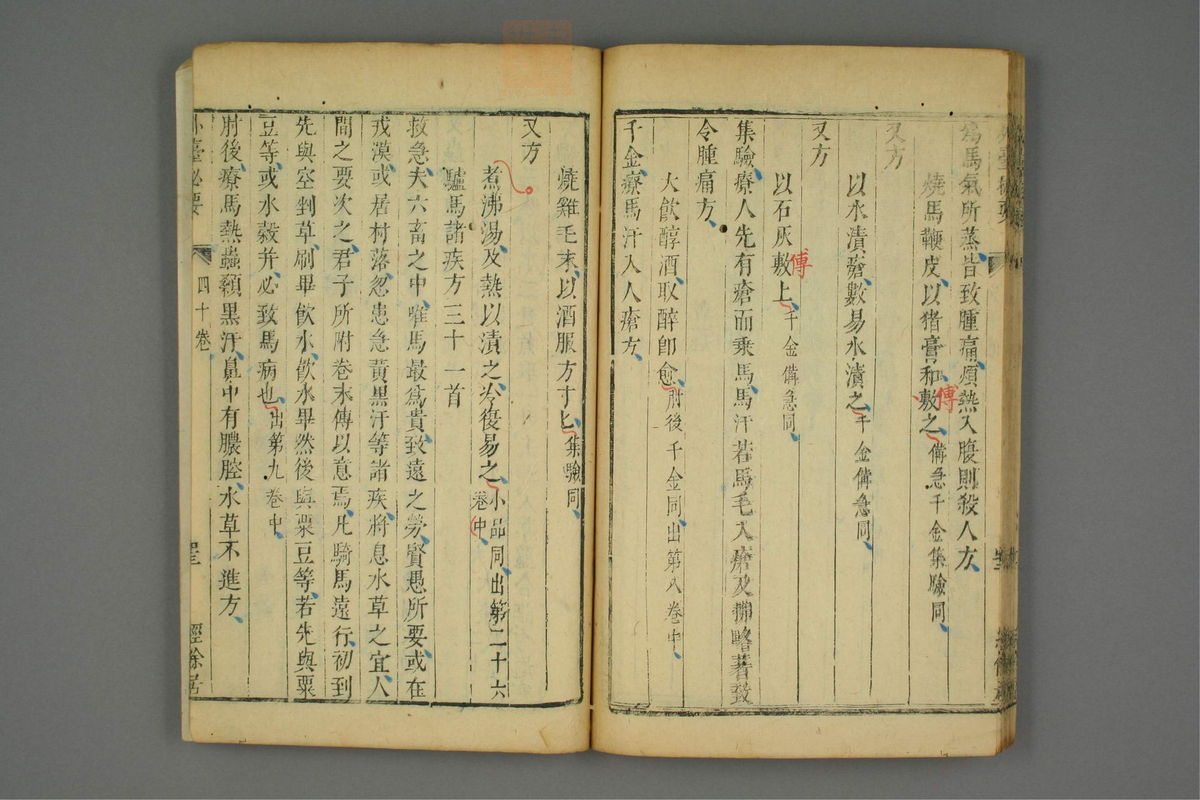 為馬氣所蒸皆致腫痛煩熱入腹則殺人方
燒馬鞭皮以猪膏和敷之備急千金集驗同
傅
又方
以水漬瘡數易水漬之千金備急同
又方
以石灰敷上千金備急同
傅
集驗療人先有瘡而乘馬馬汗若馬毛入瘡及
令腫痛方
大飲醇酒取醉卽愈肘後千金同出第八卷中
千金療馬汗入人瘡方
燒雞毛末以酒服方寸匕集驗同
又方
煮沸湯及熱以漬之冷復易之小品同出第二十六
卷中
驢馬諸疾方三十一首
救急夫六畜之中唯馬最為貴致遠之勞賢愚所要或在
戎漠或居村落忽患急黃黑汗等諸疾將息水草之宜人
間之要次之君子所附卷末傳以意焉凡騎馬遠行初到
先與空剉草刷畢飲水飲水畢然後與粟豆等若先與粟
豆等或水穀并必致馬病也出第九卷中
肘後療馬熱蟲顙黑汗鼻中有膿腔水草不進方
外臺必要
四十卷
經餘居